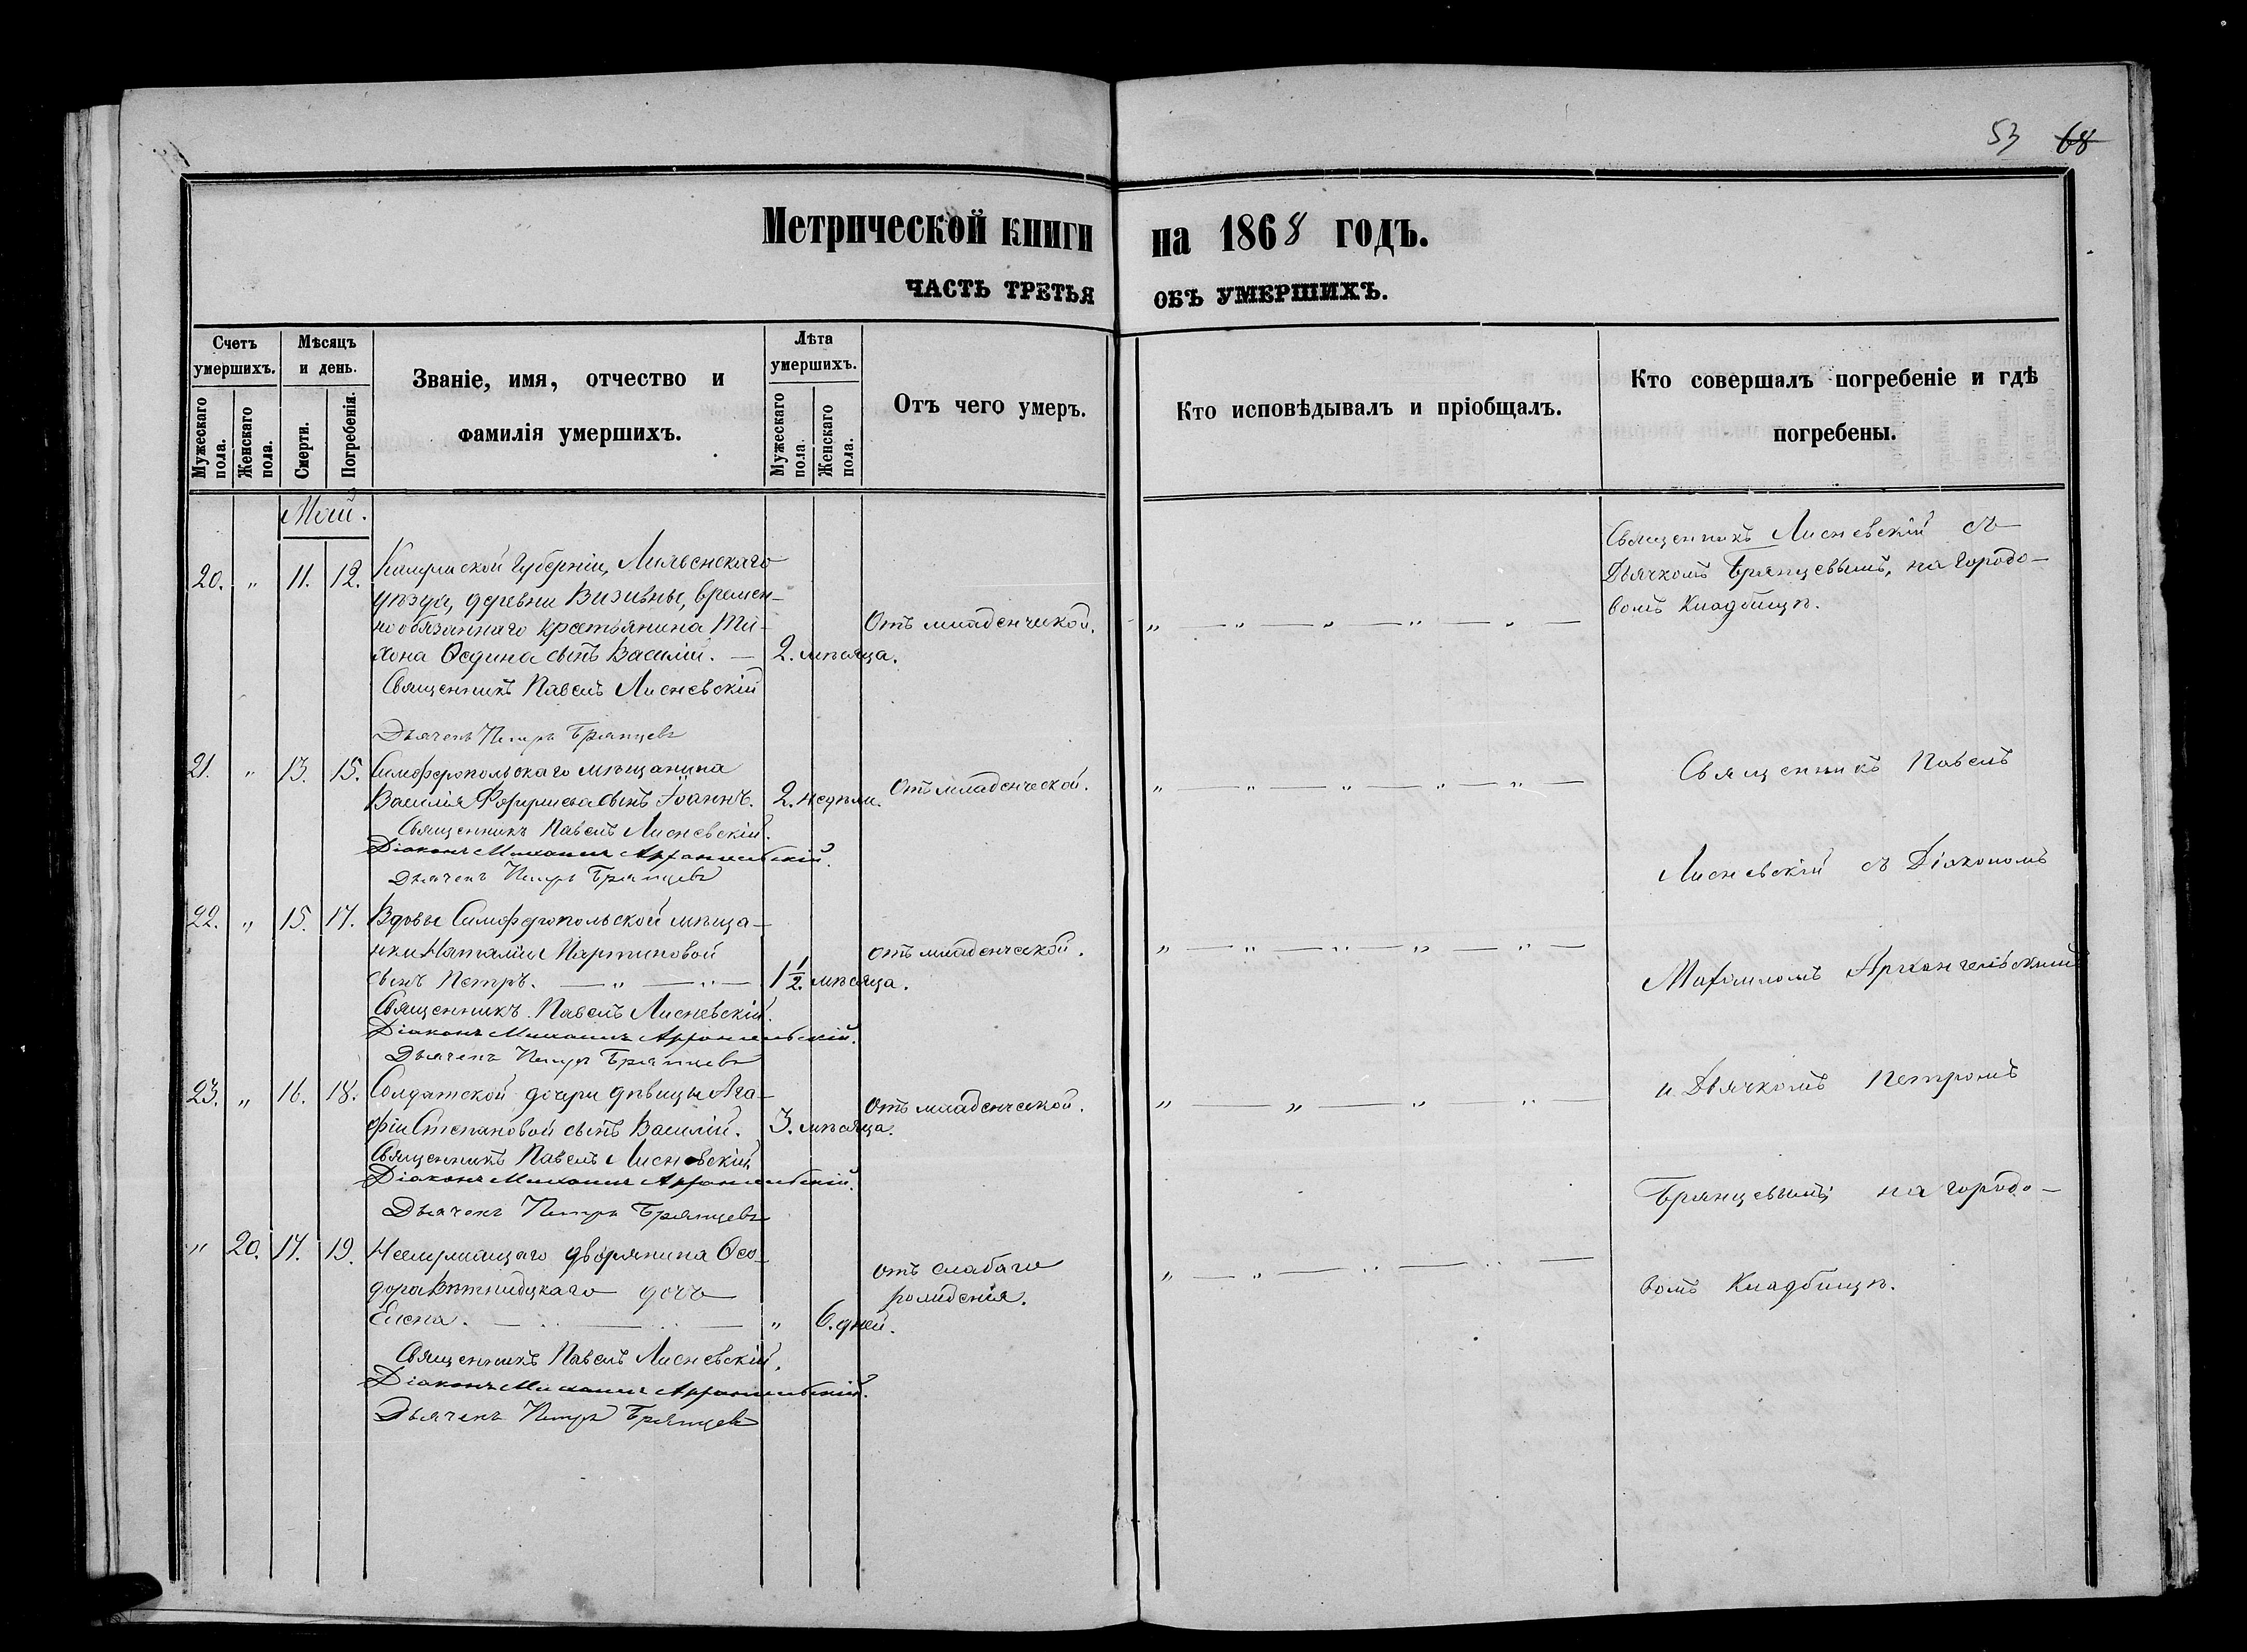 53 68
Метрической книги на 1868 годъ.
ЧАСТЬ ТРЕТЬЯ ОБЪ УМЕРШИХЪ.
Счетъ умершихъ.
Мужескаго пола.
Женскаго пола.
Мѣсяцъ и день.
Смерти.
Погребенія.
Званіе, имя, отчество и
фамилія умершихъ.
Лѣта умершихъ.
Мужескаго пола.
Женскаго пола.
Отъ чего умеръ.
Кто исповѣдывалъ и пріобщалъ.
Кто совершалъ погребеніе и гдѣ
погребены.
Май.
20. " 11. 12.
Губерніи,
уѣзда, деревни временно-
нообязаннаго крестьянина Ти-
хона сынъ Василій. —
2. мѣсяца.
Отъ младенческой.
" — " — " — " — " —
Священникъ Лисневскій съ
Дьячкомъ Брянцевымъ, на городо-
вомъ Кладбищѣ.
Священникъ Павелъ Лисневскій
Дьячекъ Петръ Брянцевъ
21. " 13. 15.
Симферопольскаго мѣщанина
Василія сынъ Іоаннъ.
2. недѣли.
Отъ младенческой.
" — " — " — " — " —
Священникъ Павелъ Лисневскій.
Діаконъ Михаилъ Архангельскій.
Дьячекъ Петръ Брянцевъ
22. " 15. 17.
Вдовы Симферопольской мѣща-
нки Наталіи Мартиновой
сынъ Петръ. — " — " —
1 1/2. мѣсяца.
отъ младенческой.
" — " — " — " — " —
Священникъ Павелъ Лисневскій.
Діаконъ Михаилъ Архангельскій.
Дьячекъ Петръ Брянцевъ
23. " 16. 18.
Солдатской дочери дѣвицы Ага-
фіи Степановой сынъ Василій.
3. мѣсяца.
Отъ младенческой.
" — " — " — " —
Священникъ Павелъ Лисневскій
Діаконъ Михаилъ Архангельскій.
Дьячекъ Петръ Брянцевъ
" 20. 17. 19.
дворянина Ѳео-
дора дочь
Елена. — " — " — " 6. дней.
отъ слабаго
рожденія.
" — " — " — " —
Священникъ Павелъ Лисневскій.
Діаконъ Михаилъ Архангельскій.
Дьячекъ Петръ Брянцевъ
Священникъ Павелъ
Лисневскій съ Діакономъ
Михаиломъ Архангельскимъ
и Дьячкомъ Петромъ
Брянцевымъ, на городо-
вомъ Кладбищѣ.